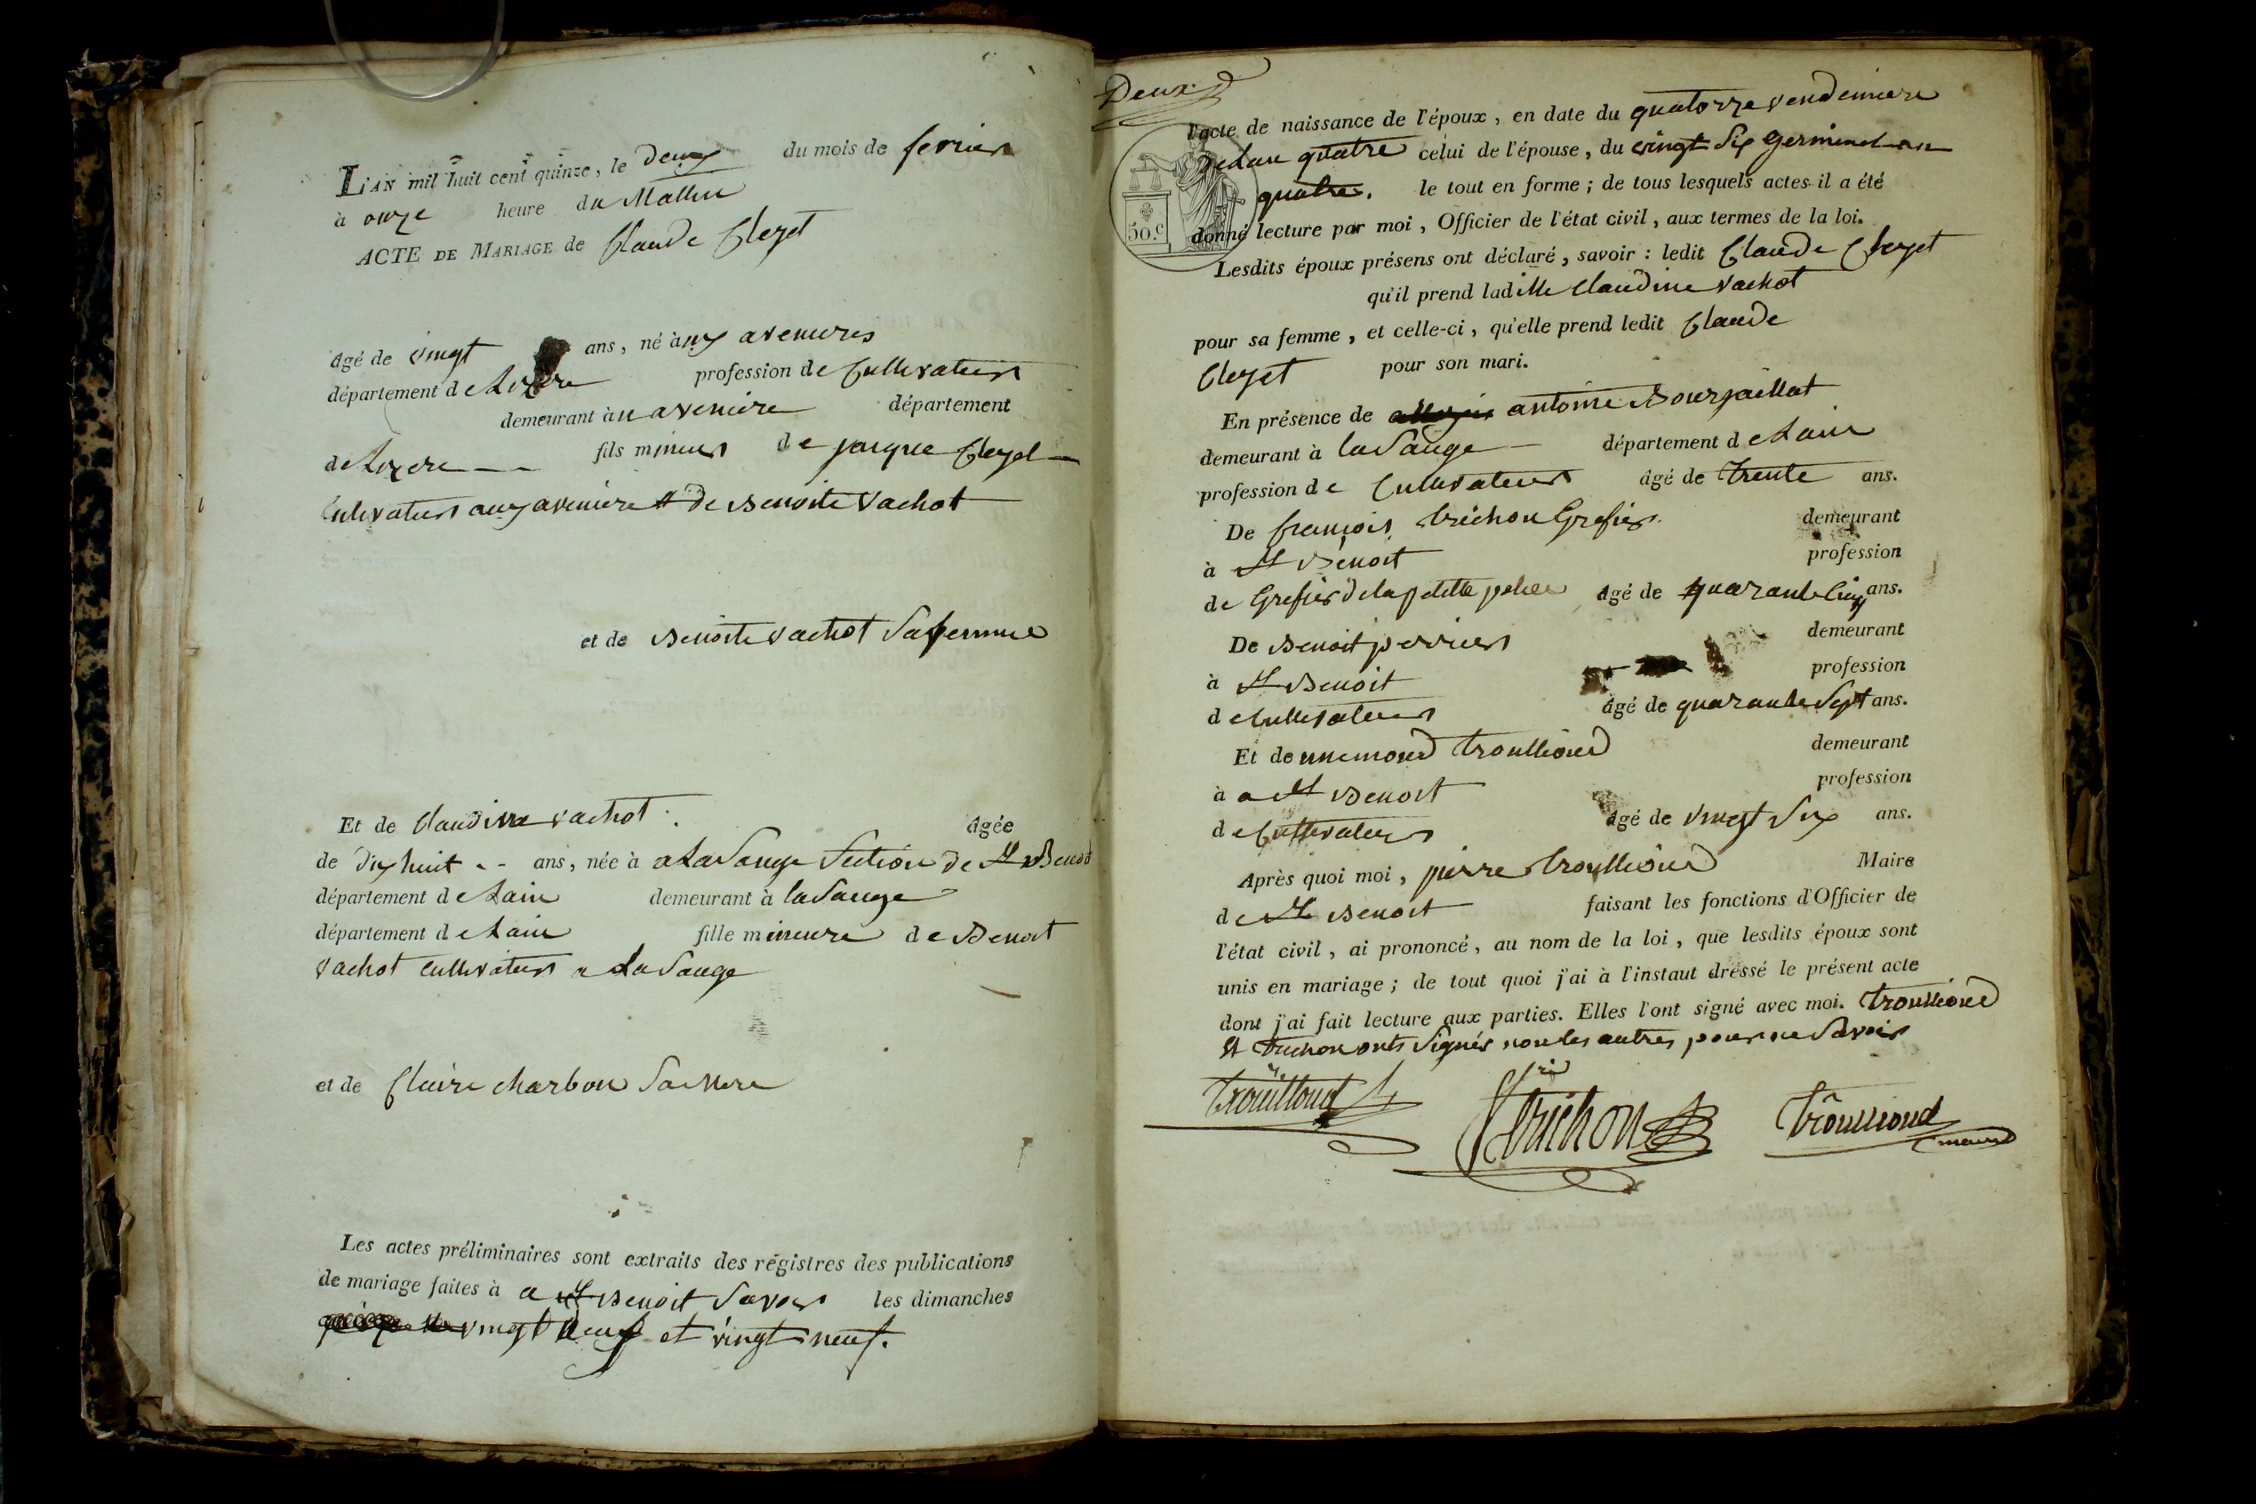 L'AN mil huit cent quinze, le deux du mois de fevrier
à onze heure du Mattin
ACTE DE MARIAGE de Claude Cleyet
âgé de vingt ans, né à aux avenieres
département de Lizere profession de Cultivateur
demeurant à u aveniere département
de Lizere fils mineur de jacque Cleyet
Cultivateur aux aveniere et de Benoite vachot
et de Benoite vachot Sa femme
Et de Claudine vachot âgée
de dix huit ans, née à a La Sauge Section de St Benoit
département de Lain demeurant à la Sauge
département de Lain fille mineure de Benoit
vachot cultivateur a La Sauge
et de Claire charbon Sa Mere
Les actes préliminaires sont extraits des régistres des publications
de mariage faites à a St Benoit Savoir les dimanches
vingt deux et vingt neuf.
Deux
l'acte de naissance de l'époux, en date du quatorze vendemiere
de Lan quatre celui de l'épouse, du vingt Six germinal an
quatre. le tout en forme; de tous lesquels actes il a été
50.c donné lecture par moi, Officier de l'état civil, aux termes de la loi.
Lesdits époux présens ont déclaré, savoir : ledit Claude Cleyet
qu'il prend ladille Claudine vachot
pour sa femme, et celle-ci, qu'elle prend ledit Claude
Cleyet pour son mari.
En présence de antoine Bourjaillat
demeurant à la Sauge département de Lain
profession de Cultivateur âgé de trente ans.
De francois trichon Grefier demeurant
à St Benoit profession
de Grefier de la petitte police âgé de quarante Cinq ans.
De Benoit perrier demeurant
à St Benoit profession
de Cultivateur âgé de quarante Sept ans.
Et de nnemond trouilloud demeurant
à a St Benoit profession
de Cultivateur âgé de vingt Six ans.
Après quoi moi, pierre trouilloud Maire
de St Benoit faisant les fonctions d'Officier de
l'état civil, ai prononcé, au nom de la loi, que lesdits époux sont
unis en mariage; de tout quoi j'ai à l'instaut dressé le présent acte
dont j'ai fait lecture aux parties. Elles l'ont signé avec moi. trouilloud
Et trichon onts Signés non les autres pour ne Savoir
trouilloud trichon trouilloud maire